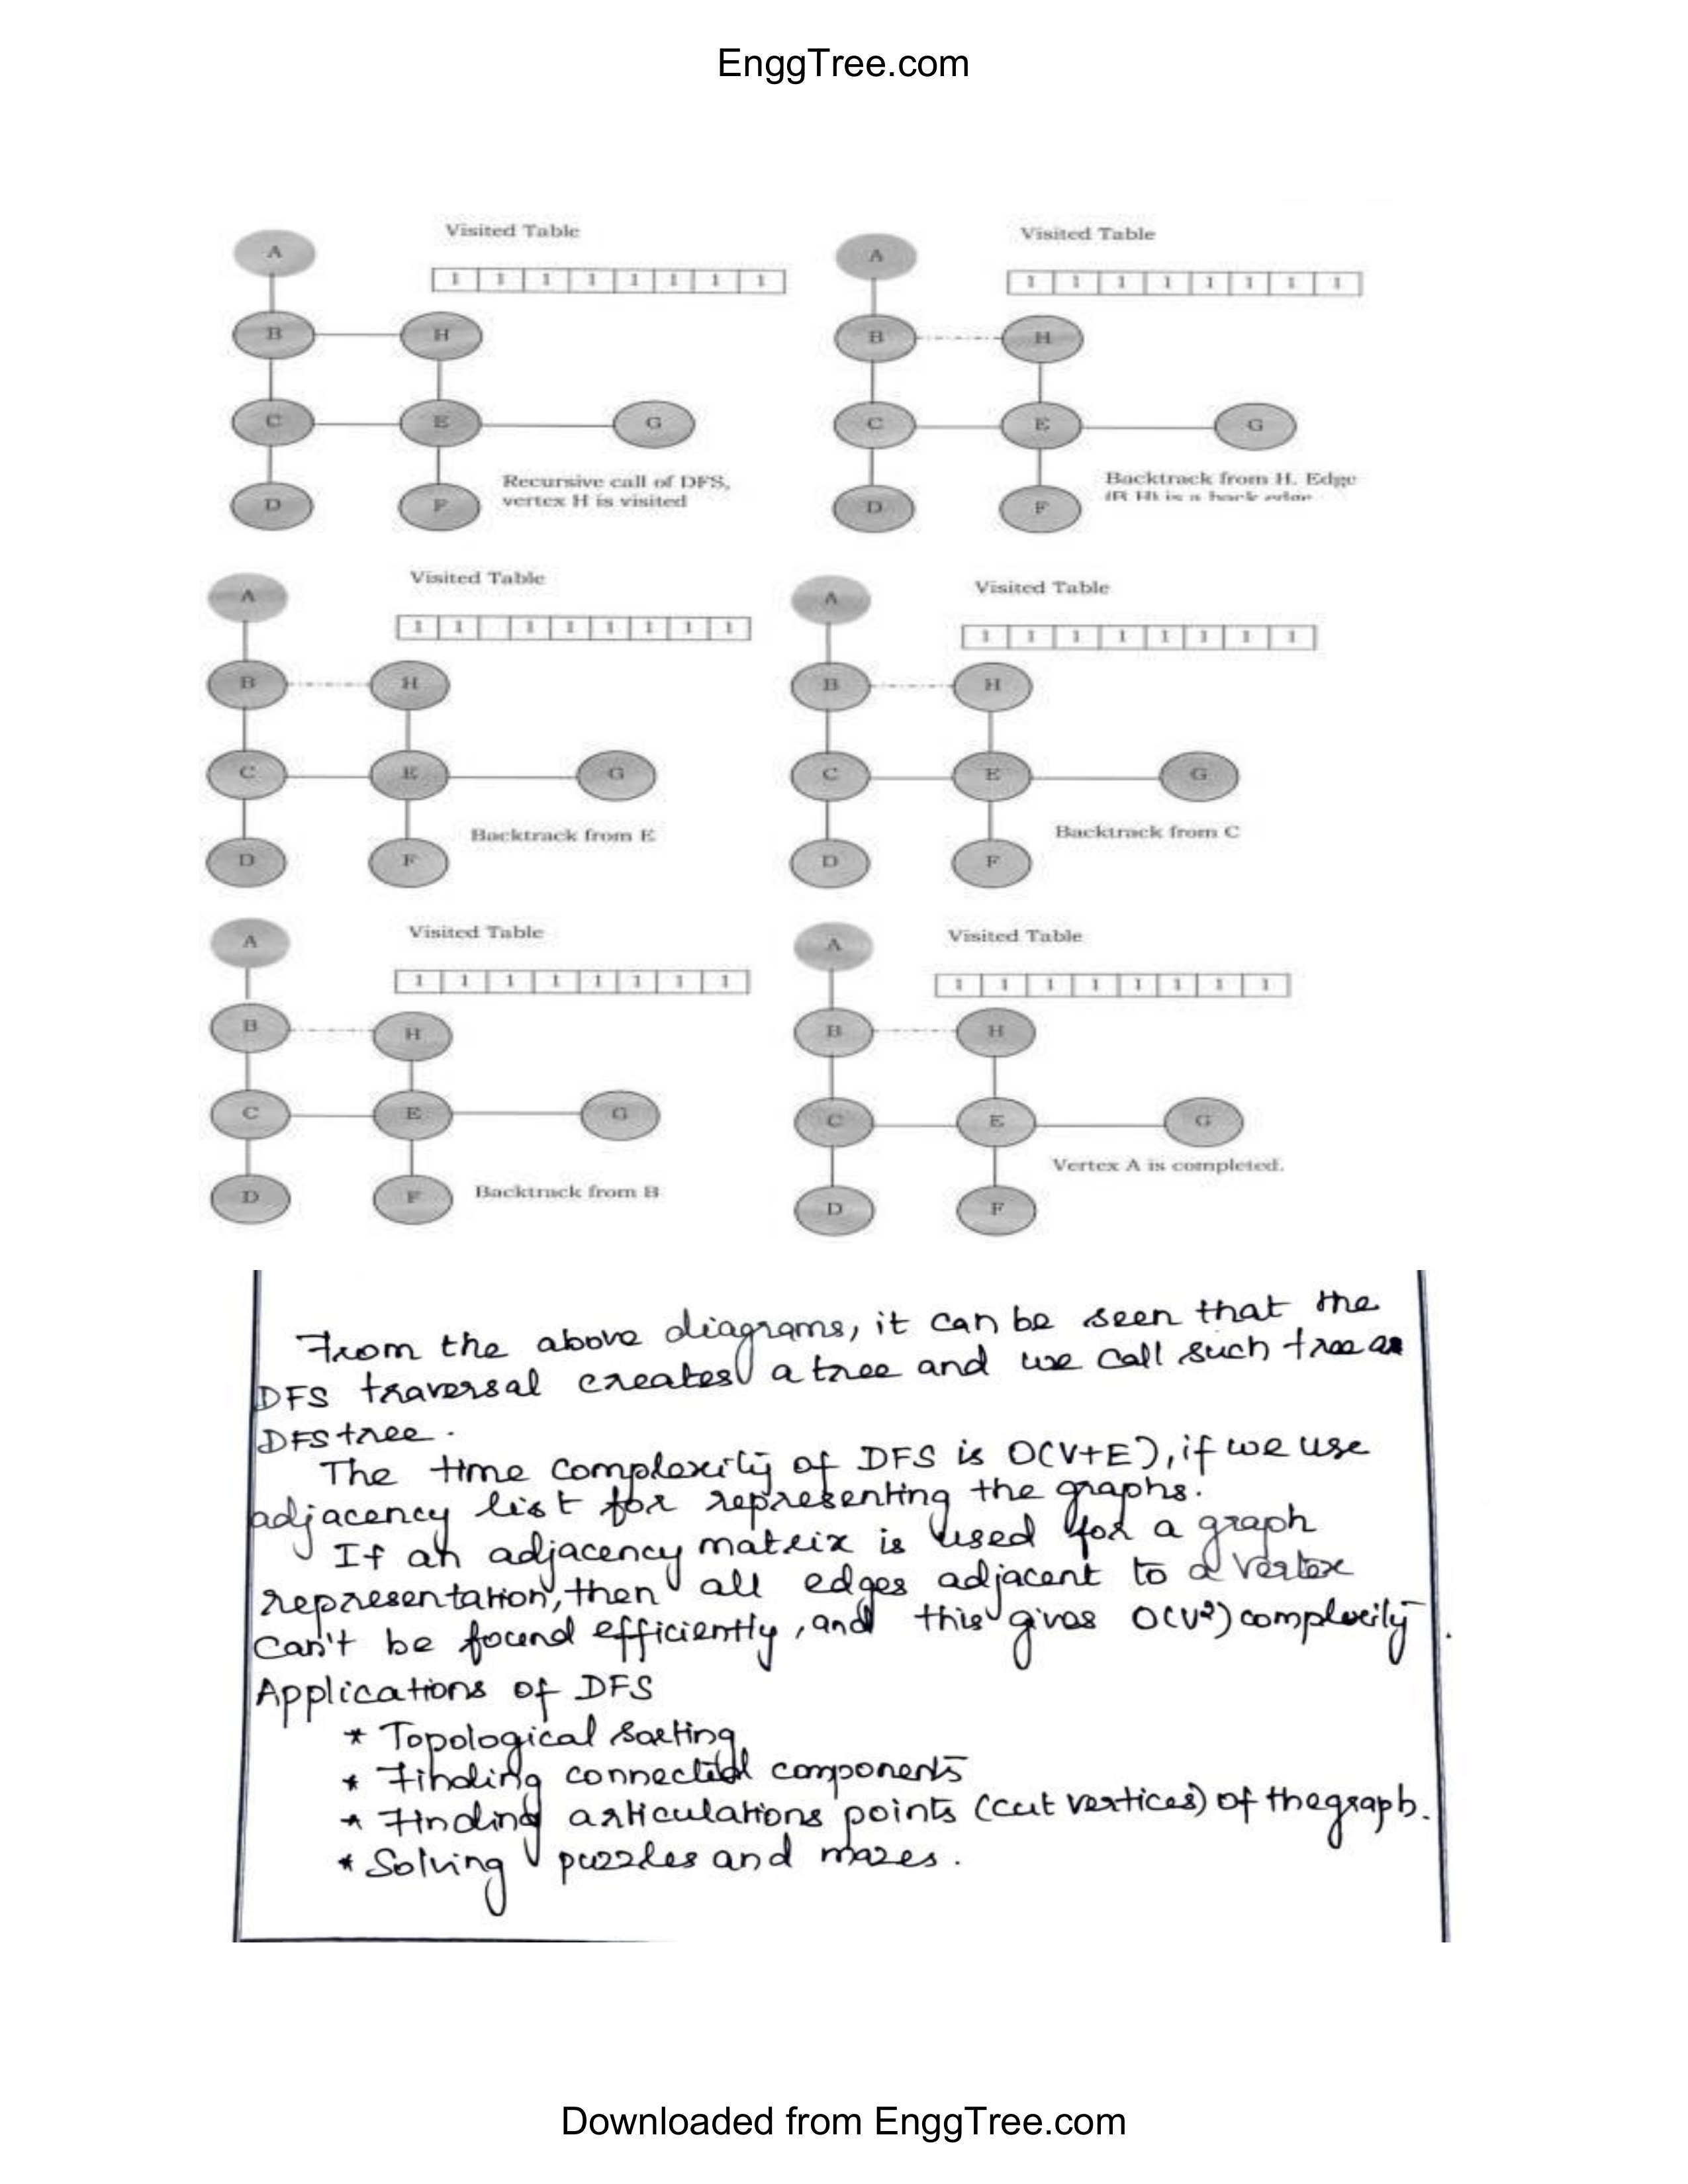 EnggTree.com
Visited Table
1 1 1 1 1 1 1 1
A
B
H
C
E
G
D
F
Recursive call of DFS,
vertex H is visited
Visited Table
1 1 1 1 1 1 1 1
A
B
H
C
E
G
D
F
Backtrack from H. Edge
(B H) is a back edge
Visited Table
1 1 1 1 1 1 1 1
A
B
H
C
E
G
D
F
Backtrack from E
Visited Table
1 1 1 1 1 1 1 1
A
B
H
C
E
G
D
F
Backtrack from C
Visited Table
1 1 1 1 1 1 1 1
A
B
H
C
E
G
D
F
Backtrack from B
Visited Table
1 1 1 1 1 1 1 1
A
B
H
C
E
G
D
F
Vertex A is completed.
From the above diagrams, it can be seen that the
DFS traversal creates a tree and we call such tree as
DFS tree.
The time complexity of DFS is O(V+E), if we use
adjacency list for representing the graphs.
If an adjacency matrix is used for a graph
representation, then all edges adjacent to a vertex
can't be found efficiently, and this gives O(V²) complexity.
Applications of DFS
* Topological sorting
* Finding connected components
* Finding articulations points (cut vertices) of the graph.
* Solving puzzles and mazes.
Downloaded from EnggTree.com